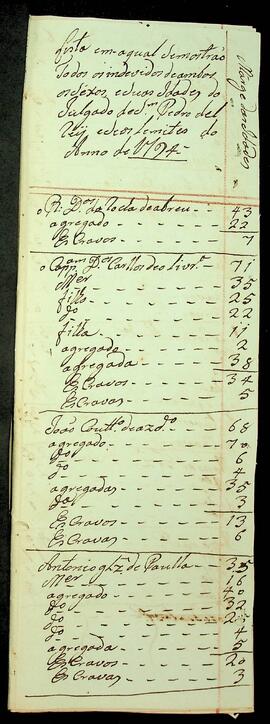 Lista em aqual demostrão
todos os indevidos deambos
os sexos, eduas Idades do
Julgado de S.m Pedro del
Rij edeos lemites do
Anno de 1794
Marge das Idades
o R. D.os da Costa de abreu - 43
agregado - - - - - 22
Escravos - - - - - 7
o Cap.am D.os Carllos de olivr.a 71
Mer - - - - - 35
fillo - - - - - 25
do - - - - - 22
filla - - - - - 11
agregado - - - - - 2
agregada - - - - - 38
Escravos - - - - - 34
Escravas - - - - - 5
João Coutt.o de az.do 68
agregado - - - - - 70
do - - - - - 6
do - - - - - 4
agregadas - - - - - 35
da - - - - - 3
Escravos - - - - - 13
Escravas - - - - - 6
Antonio glz de Paulla - 35
Mer - - - - - 16
agregado - - - - - 40
do - - - - - 32
do - - - - - 2
do - - - - - 4
agregada - - - - - 5
Escravos - - - - - 20
Escravas - - - - - 3